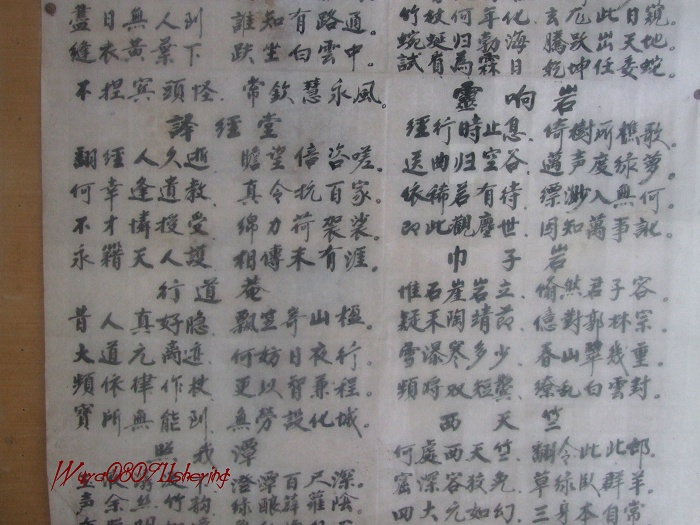 盡日無人到 誰知有路通。
縫衣黃葉下 趺坐白雲中。
不捏冥頭怪 常欽慧永風。
譯經堂
翻經人久逝 瞻望倍咨嗟。
何幸逢遺教 真令抗百家。
不才憐授受 綿力荷袈裟。
永籍天人護 相傳未有涯。
行道菴
昔人真好隐 飄笠寄山楹。
大道元离迹 何妨日夜行。
頻依律作杖 更以智兼程。
寶所無能到 無勞設化城。
照我潭
澄潭百尺深
竹杖何年化 玄 此日窺
蜿蜒归勃海 騰跃出天地
試有為霖日 乾坤任委蛇。
靈响岩
經行時止息 倚樹所樵歌
送曲归空谷 過声度绿萝
依稀若有待 缥渺入無何
即此觀塵世 因知萬事訛。
巾子岩
惟石崖岩立 偷然君子容
疑禾陶靖節 億對郭林宗
雪瀑寒多少 春山翠幾重
頻将双短鬓 缭乱白雲封
西天竺
何處西天竺 翻令此此邨
窑深容狡兔 草绿臥群羊。
四大元如幻 三身本自常
Wuya080911shejing